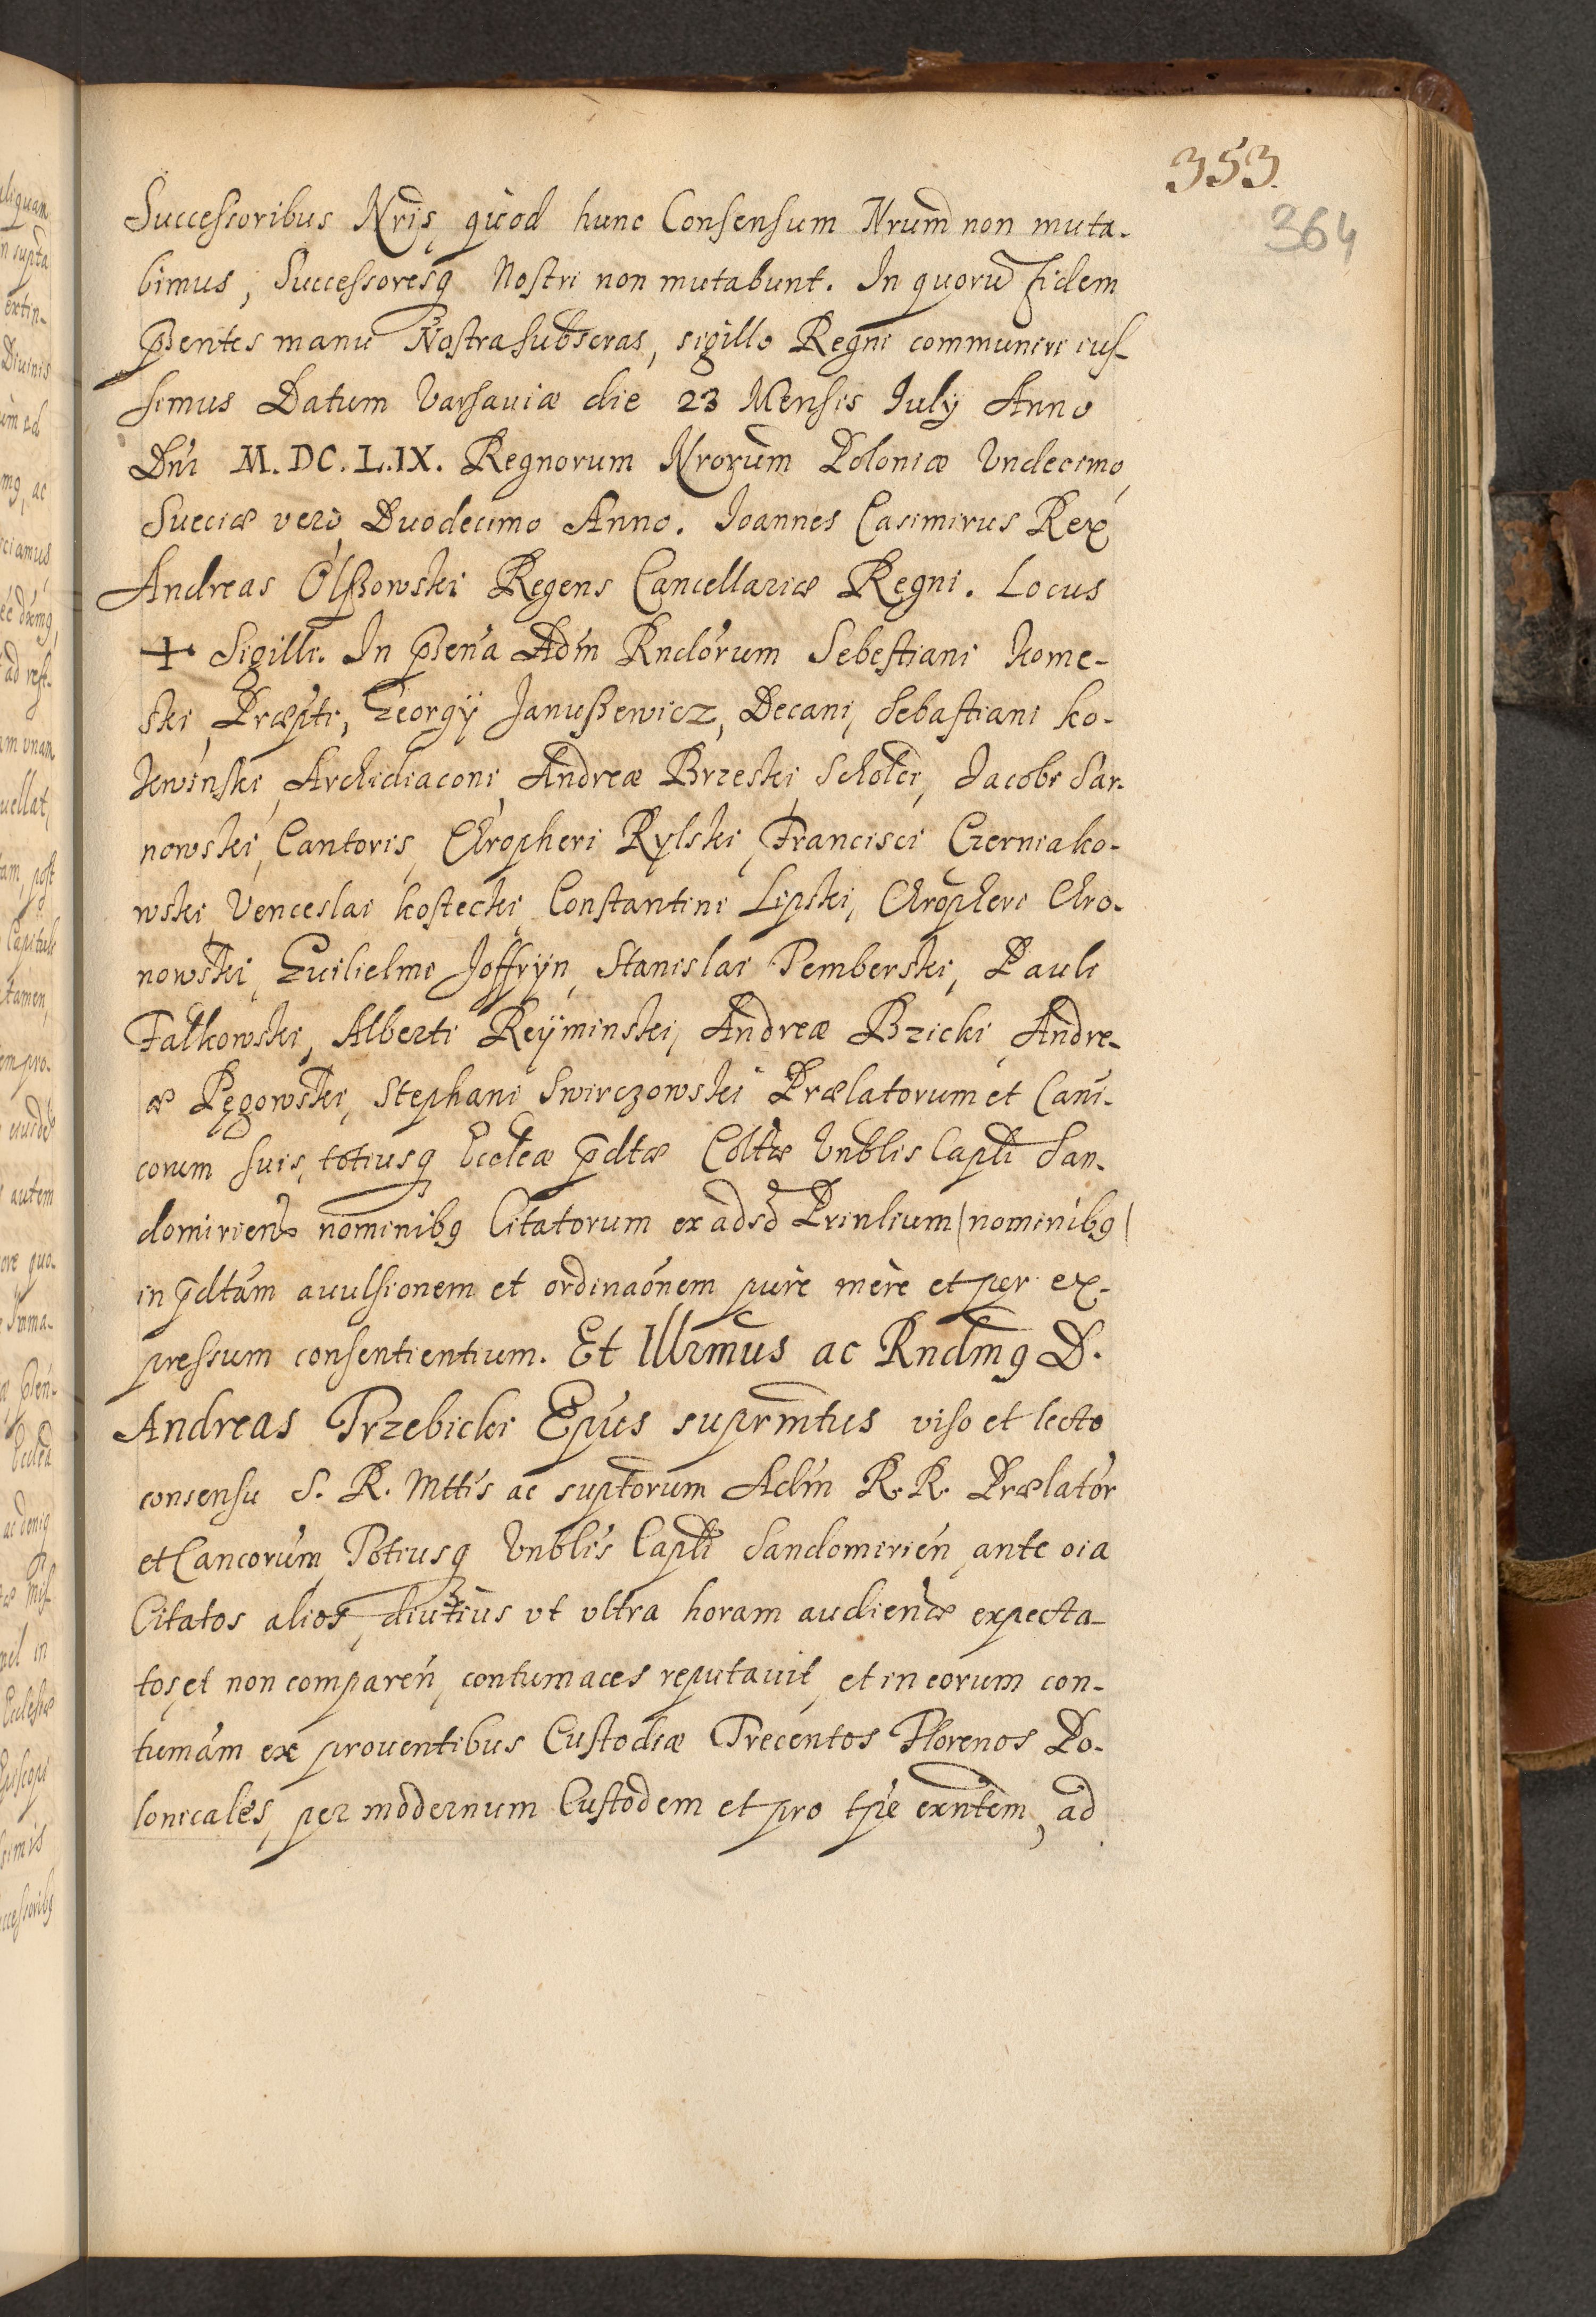 353.
364
Successoribus Nris, quod hunc Consensum Nrum non muta-
bimus, Successoresq Nostri non mutabunt. In quoru fidem
pñtes manu Nostra subscras, sigillo Regni communiri ius-
simus Datum Varsauiæ die 23 Mensis July Anno
Dni M. DC. L.IX. Regnorum Nrorum Poloniæ Vndecimo,
Sueciæ verò Duodecimo Anno. Ioannes Casimirus Rex
Andreas Olßowski Regens Cancellariæ Regni. Locus
+ Sigilli. In Adm Rndorum Sebestiani kome-
ski, Præpti, Georgÿ Janußewicz, Decani, Sebastiani ko-
kwinski, Archidiaconi, Andreæ Brzeski Scholci, Iacobi Sar-
nowski, Cantoris, Chropheri Rylski, Francisci Czerniako-
wski, Venceslai kostecki, Constantini Lipski, Chropheri Chro-
nowski, Guilielmi Joffryn, Stanislai Temberski, Pauli
Fałkowski, Alberti Reÿminski, Andreæ Bzicki, Andre-
æ Pęgowski, Stephani Swirczowski Prælatorum et Cani-
corum suis, totiusq Eccleæ pdtæ Coltæ Vnblis Capli San-
domirien nominibg Citatorum ex adso Prinlium (nominibg)
in pdtam auulsionem et ordinaonem purè merè et per ex-
pressum consentientium. Et Illrmus ac Rndmg D.
Andreas Trzebicki Epus suprmtus viso et lecto
consensu S. R. Mttis ac suptorum Adm R. R. Prælator
et Cancorum, Totiusq Vnblis Capli Sandomirien, ante oia
Citatos alios, diutius vt vltra horam audienæ expecta-
tos, et non comparen, contumaces reputauit, et in eorum con-
tumam ex prouentibus Custodiæ Trecentos Florenos Po-
lonicales, per modernum Custodem et pro tpe exntem, ad